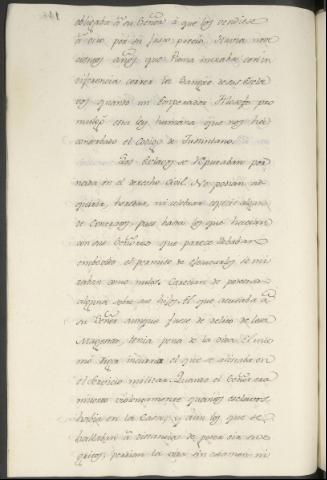 obligaba á su Señor á que los vendiese
á otro por su justo precio. Hacia nove
cientos años que Roma miraba con in
diferencia correr la sangre de sus Escla
vos quando un Emperador Filosofo pro
mulgó esta ley humana que nos ha
conservado el Codigo de Justiniano.
Los Esclavos se reputaban por
nada en el derecho Civil. No podian ad
quirir, heredar, ni celebrar especie alguna
de Contratos, pues hasta los que hacian
con sus Señores que parece debaban
embebido el permiso de efectuarlos se mi
raban como nulos. Carecian de potestad
alguna sobre sus hijos. El que acusaba á
su Señor aunque fuese de delito de lesa
Magestad, tenia pena de la vida. En la mis
ma pena incurria el que se alistaba en
el Servicio militar. Quando el Señor era
muerto violentamente quantos esclavos
habia en la Casa, y aun los que se
hallaban á distancia de poder oir sus
gritos, perdian la vida sin examen ni